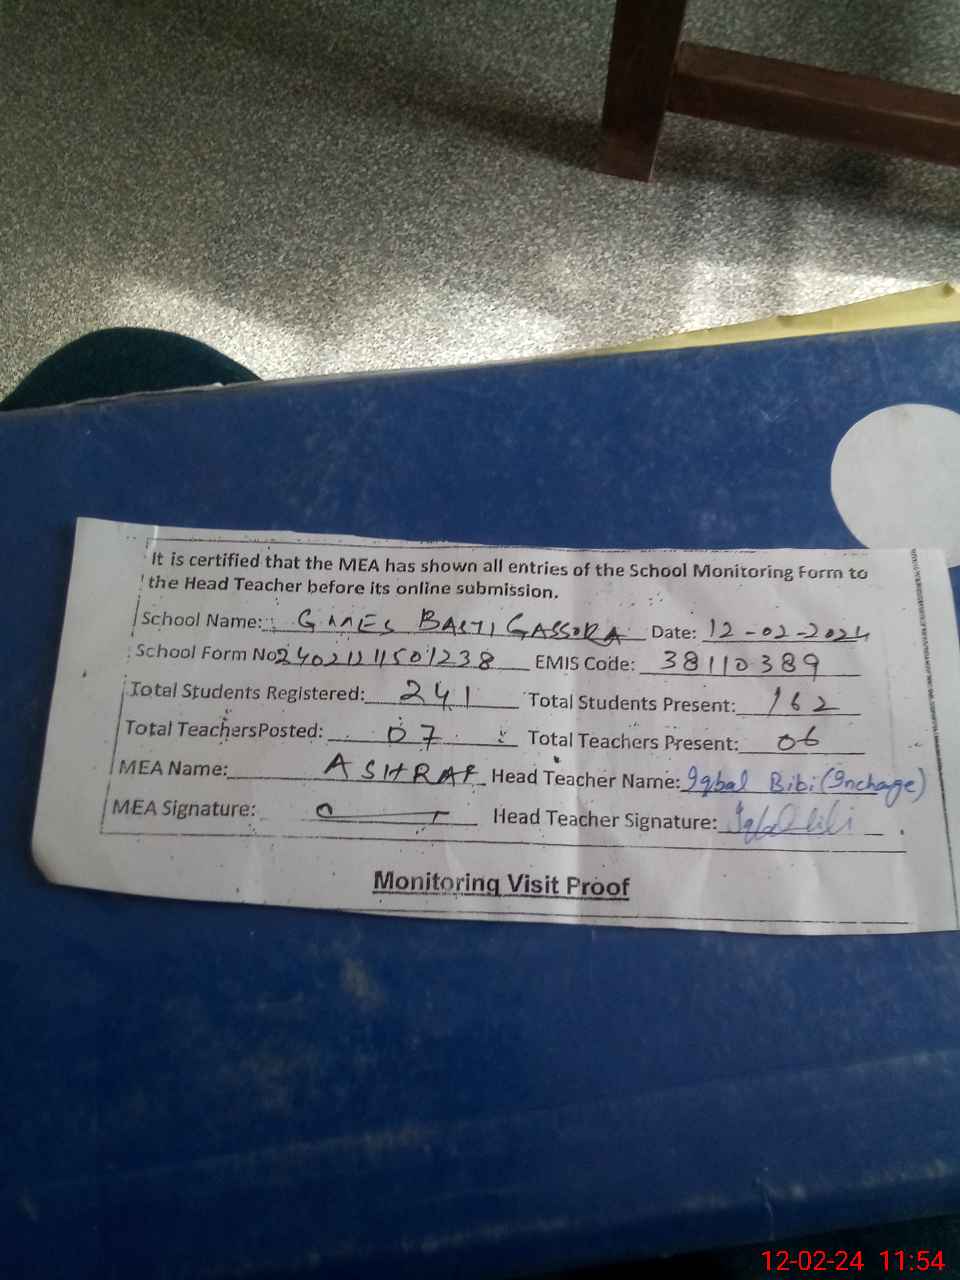 It is certified that the MEA has shown all entries of the School Monitoring Form to
the Head Teacher before its online submission.
School Name: GMMES BASTI GASSORA Date: 12-02-2024
School Form No. EMIS Code: 38110389
Total Students Registered: 241 Total Students Present: 162
Total TeachersPosted: 07 Total Teachers Present: 06
MEA Name: ASHRAF Head Teacher Name: Iqbal Bibi (Incharge)
MEA Signature: Head Teacher Signature: Iqbal bibi
Monitoring Visit Proof
12-02-24 11:54